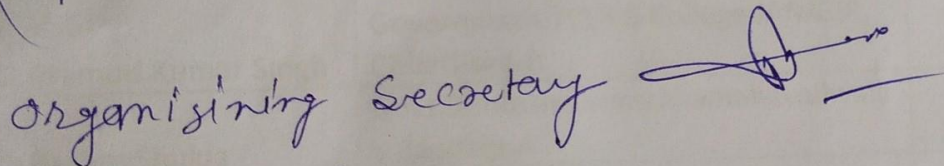 organisining Secretary